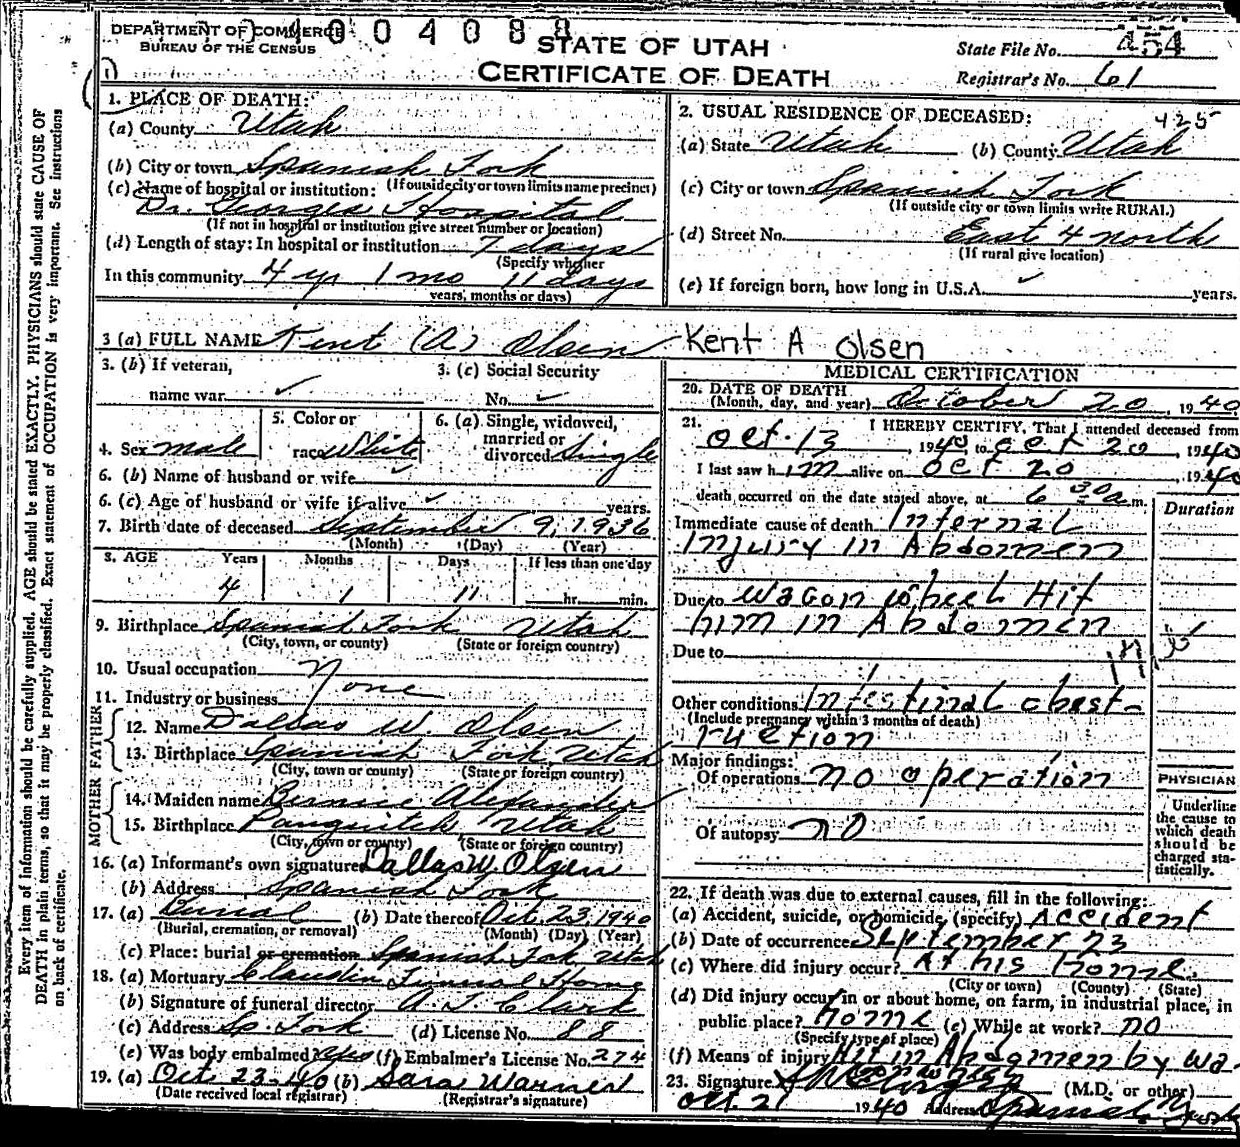 Every item of information should be carefully supplied. AGE should be stated EXACTLY. PHYSICIANS should state CAUSE OF
DEATH in plain terms, so that it may be properly classified. Exact statement of OCCUPATION is very important. See instructions
on back of certificate.
DEPARTMENT OF COMMERCE
BUREAU OF THE CENSUS
4004088
STATE OF UTAH
CERTIFICATE OF DEATH
State File No. 454
Registrar's No. 61
1. PLACE OF DEATH:
(a) County Utah
(b) City or town Spanish Fork
(If outside city or town limits name precinct)
(c) Name of hospital or institution:
Dr. Georges Hospital
(If not in hospital or institution give street number or location)
(d) Length of stay: In hospital or institution 7 days
(Specify whether
In this community 4 yr 1 mo 11 days
years, months or days)
2. USUAL RESIDENCE OF DECEASED:
425
(a) State Utah (b) County Utah
(c) City or town Spanish Fork
(If outside city or town limits write RURAL)
(d) Street No. East 4 north
(If rural give location)
(e) If foreign born, how long in U.S.A. ✓ years.
3 (a) FULL NAME Kent (A) Olsen Kent A Olsen
3. (b) If veteran,
name war ✓
3. (c) Social Security
No. ✓
4. Sex male
5. Color or
race White
6. (a) Single, widowed,
married or
divorced Single
6. (b) Name of husband or wife
6. (c) Age of husband or wife if alive ✓ years.
7. Birth date of deceased September 9, 1936
(Month) (Day) (Year)
8. AGE Years Months Days If less than one day
4 1 11 hr. min.
9. Birthplace Spanish Fork Utah
(City, town, or county) (State or foreign country)
10. Usual occupation None
11. Industry or business
FATHER
12. Name Dallas W. Olsen
13. Birthplace Spanish Fork Utah
(City, town or county) (State or foreign country)
MOTHER
14. Maiden name Bernice Alexander
15. Birthplace Panguitch Utah
(City, town or county) (State or foreign country)
16. (a) Informant's own signature Dallas W. Olsen
(b) Address Spanish Fork
17. (a) Burial (b) Date thereof Oct. 23, 1940
(Burial, cremation, or removal) (Month) (Day) (Year)
(c) Place: burial or cremation Spanish Fork Utah
18. (a) Mortuary Claudin Funeral Home
(b) Signature of funeral director A. T. Clark
(c) Address Sp. Fork (d) License No. 88
(e) Was body embalmed? yes (f) Embalmer's License No. 274
19. (a) Oct 23-40 (b) Sara Warner
(Date received local registrar) (Registrar's signature)
MEDICAL CERTIFICATION
20. DATE OF DEATH
(Month, day, and year) October 20, 1940
21. I HEREBY CERTIFY, That I attended deceased from
Oct. 13, 1940, to Oct 20, 1940
I last saw him alive on Oct 20, 1940
death occurred on the date stated above, at 6 30 a m.
Duration
Immediate cause of death Internal
Injury in Abdomen
Due to Wagon wheel Hit
him in Abdomen
Due to
Other conditions Intestinal obst-
(Include pregnancy within 3 months of death)
ruction
Major findings:
Of operations no operation
Of autopsy no
PHYSICIAN
Underline
the cause to
which death
should be
charged sta-
tistically.
22. If death was due to external causes, fill in the following:
(a) Accident, suicide, or homicide, (specify) Accident
(b) Date of occurrence September 23
(c) Where did injury occur? At his home
(City or town) (County) (State)
(d) Did injury occur in or about home, on farm, in industrial place, in
public place? home (e) While at work? no
(Specify type of place)
(f) Means of injury Hit in Abdomen by wa-
23. Signature (M.D. or other)
Oct. 21 1940 Address Spanish Fork